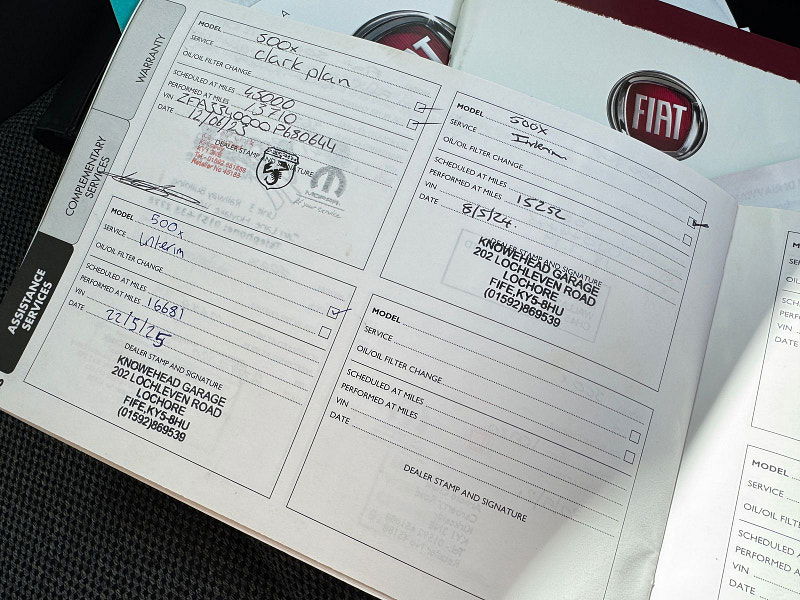 WARRANTY
COMPLEMENTARY
SERVICES
ASSISTANCE
SERVICES
MODEL 500x
SERVICE Clark plan
OIL/OIL FILTER CHANGE
SCHEDULED AT MILES 45000
PERFORMED AT MILES
VIN
DATE 12/06/23
DEALER STAMP AND SIGNATURE
MODEL 500x
SERVICE Interim
OIL/OIL FILTER CHANGE
SCHEDULED AT MILES
PERFORMED AT MILES 15252
VIN
DATE 8/5/24
DEALER STAMP AND SIGNATURE
KNOWEHEAD GARAGE
202 LOCHLEVEN ROAD
LOCHORE
FIFE,KY5-8HU
(01592)869539
MODEL 500x
SERVICE Interim
OIL/OIL FILTER CHANGE
SCHEDULED AT MILES
PERFORMED AT MILES 16681
VIN
DATE 22/5/25
DEALER STAMP AND SIGNATURE
KNOWEHEAD GARAGE
202 LOCHLEVEN ROAD
LOCHORE
FIFE,KY5-8HU
(01592)869539
MODEL
SERVICE
OIL/OIL FILTER CHANGE
SCHEDULED AT MILES
PERFORMED AT MILES
VIN
DATE
DEALER STAMP AND SIGNATURE
FIAT
MODEL
SERVICE
OIL/OIL FILTER
SCHEDULED A
PERFORMED A
VIN
DATE